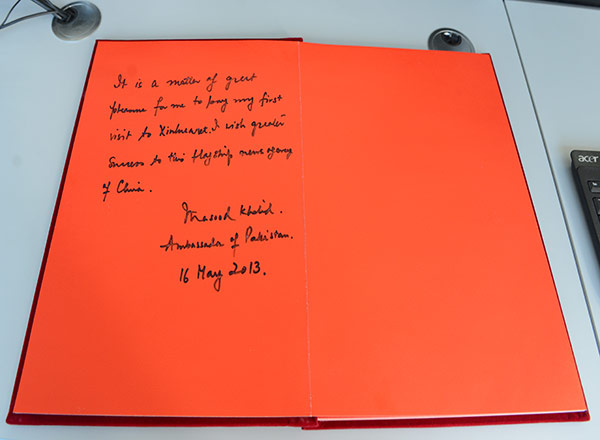 It is a matter of great
pleasure for me to pay my first
visit to Xinhuanet. I wish greater
success to this flagship news agency
of China.
Masood Khalid.
Ambassador of Pakistan.
16 May 2013.
acer